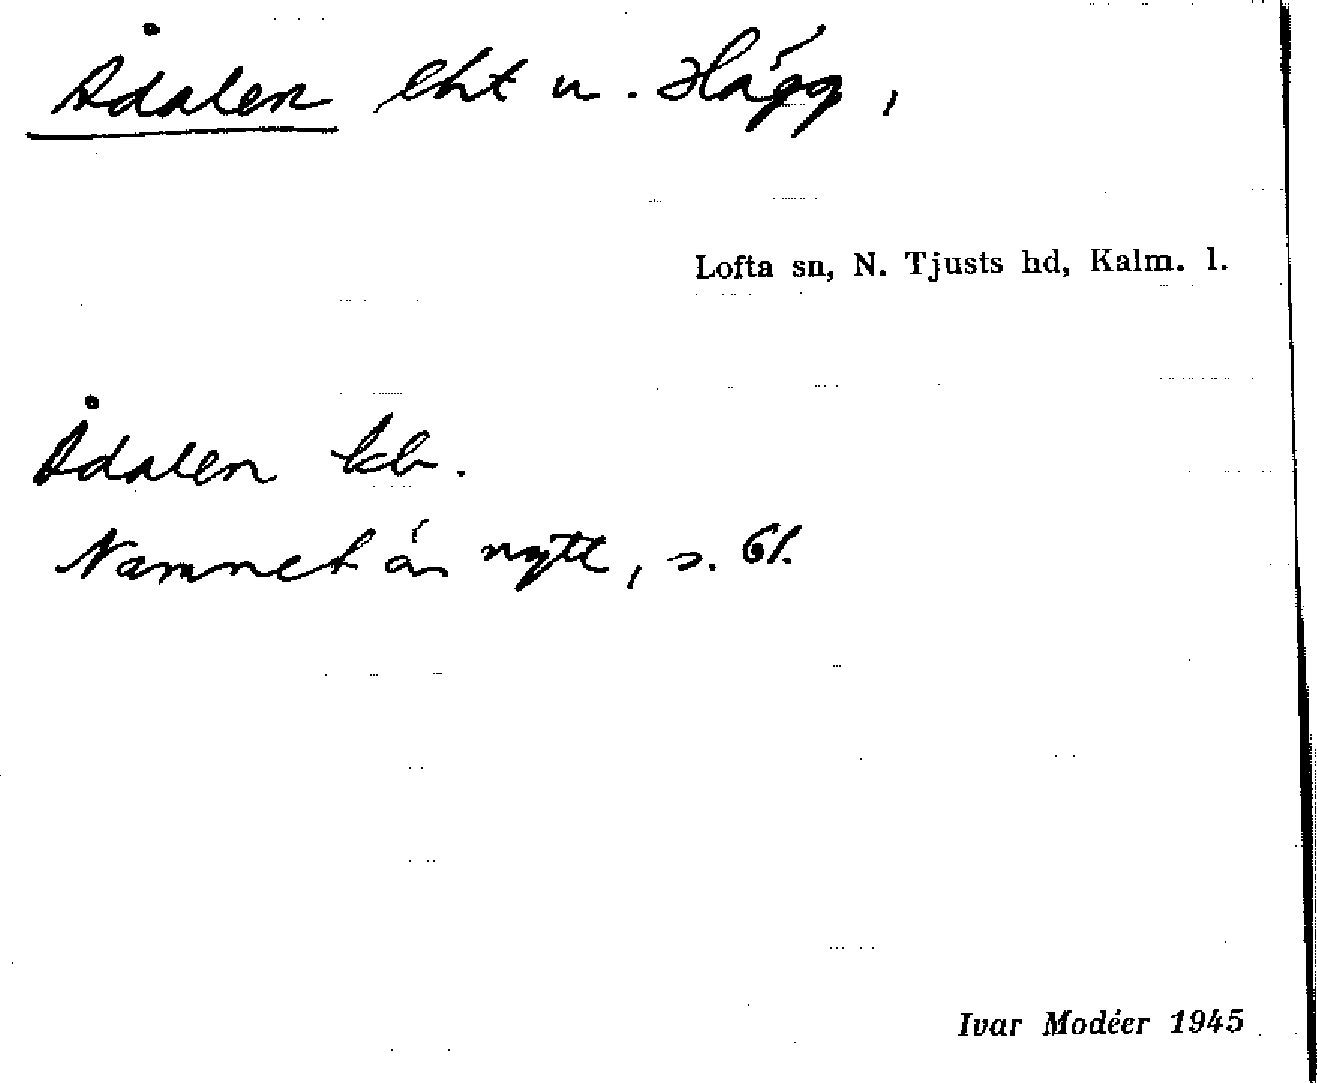 Ådalen lht u. Hägg,
Lofta sn, N. Tjusts hd, Kalm. l.
Ådalen kb.
Namnet är nytt, s. 61.
Ivar Modéer 1945